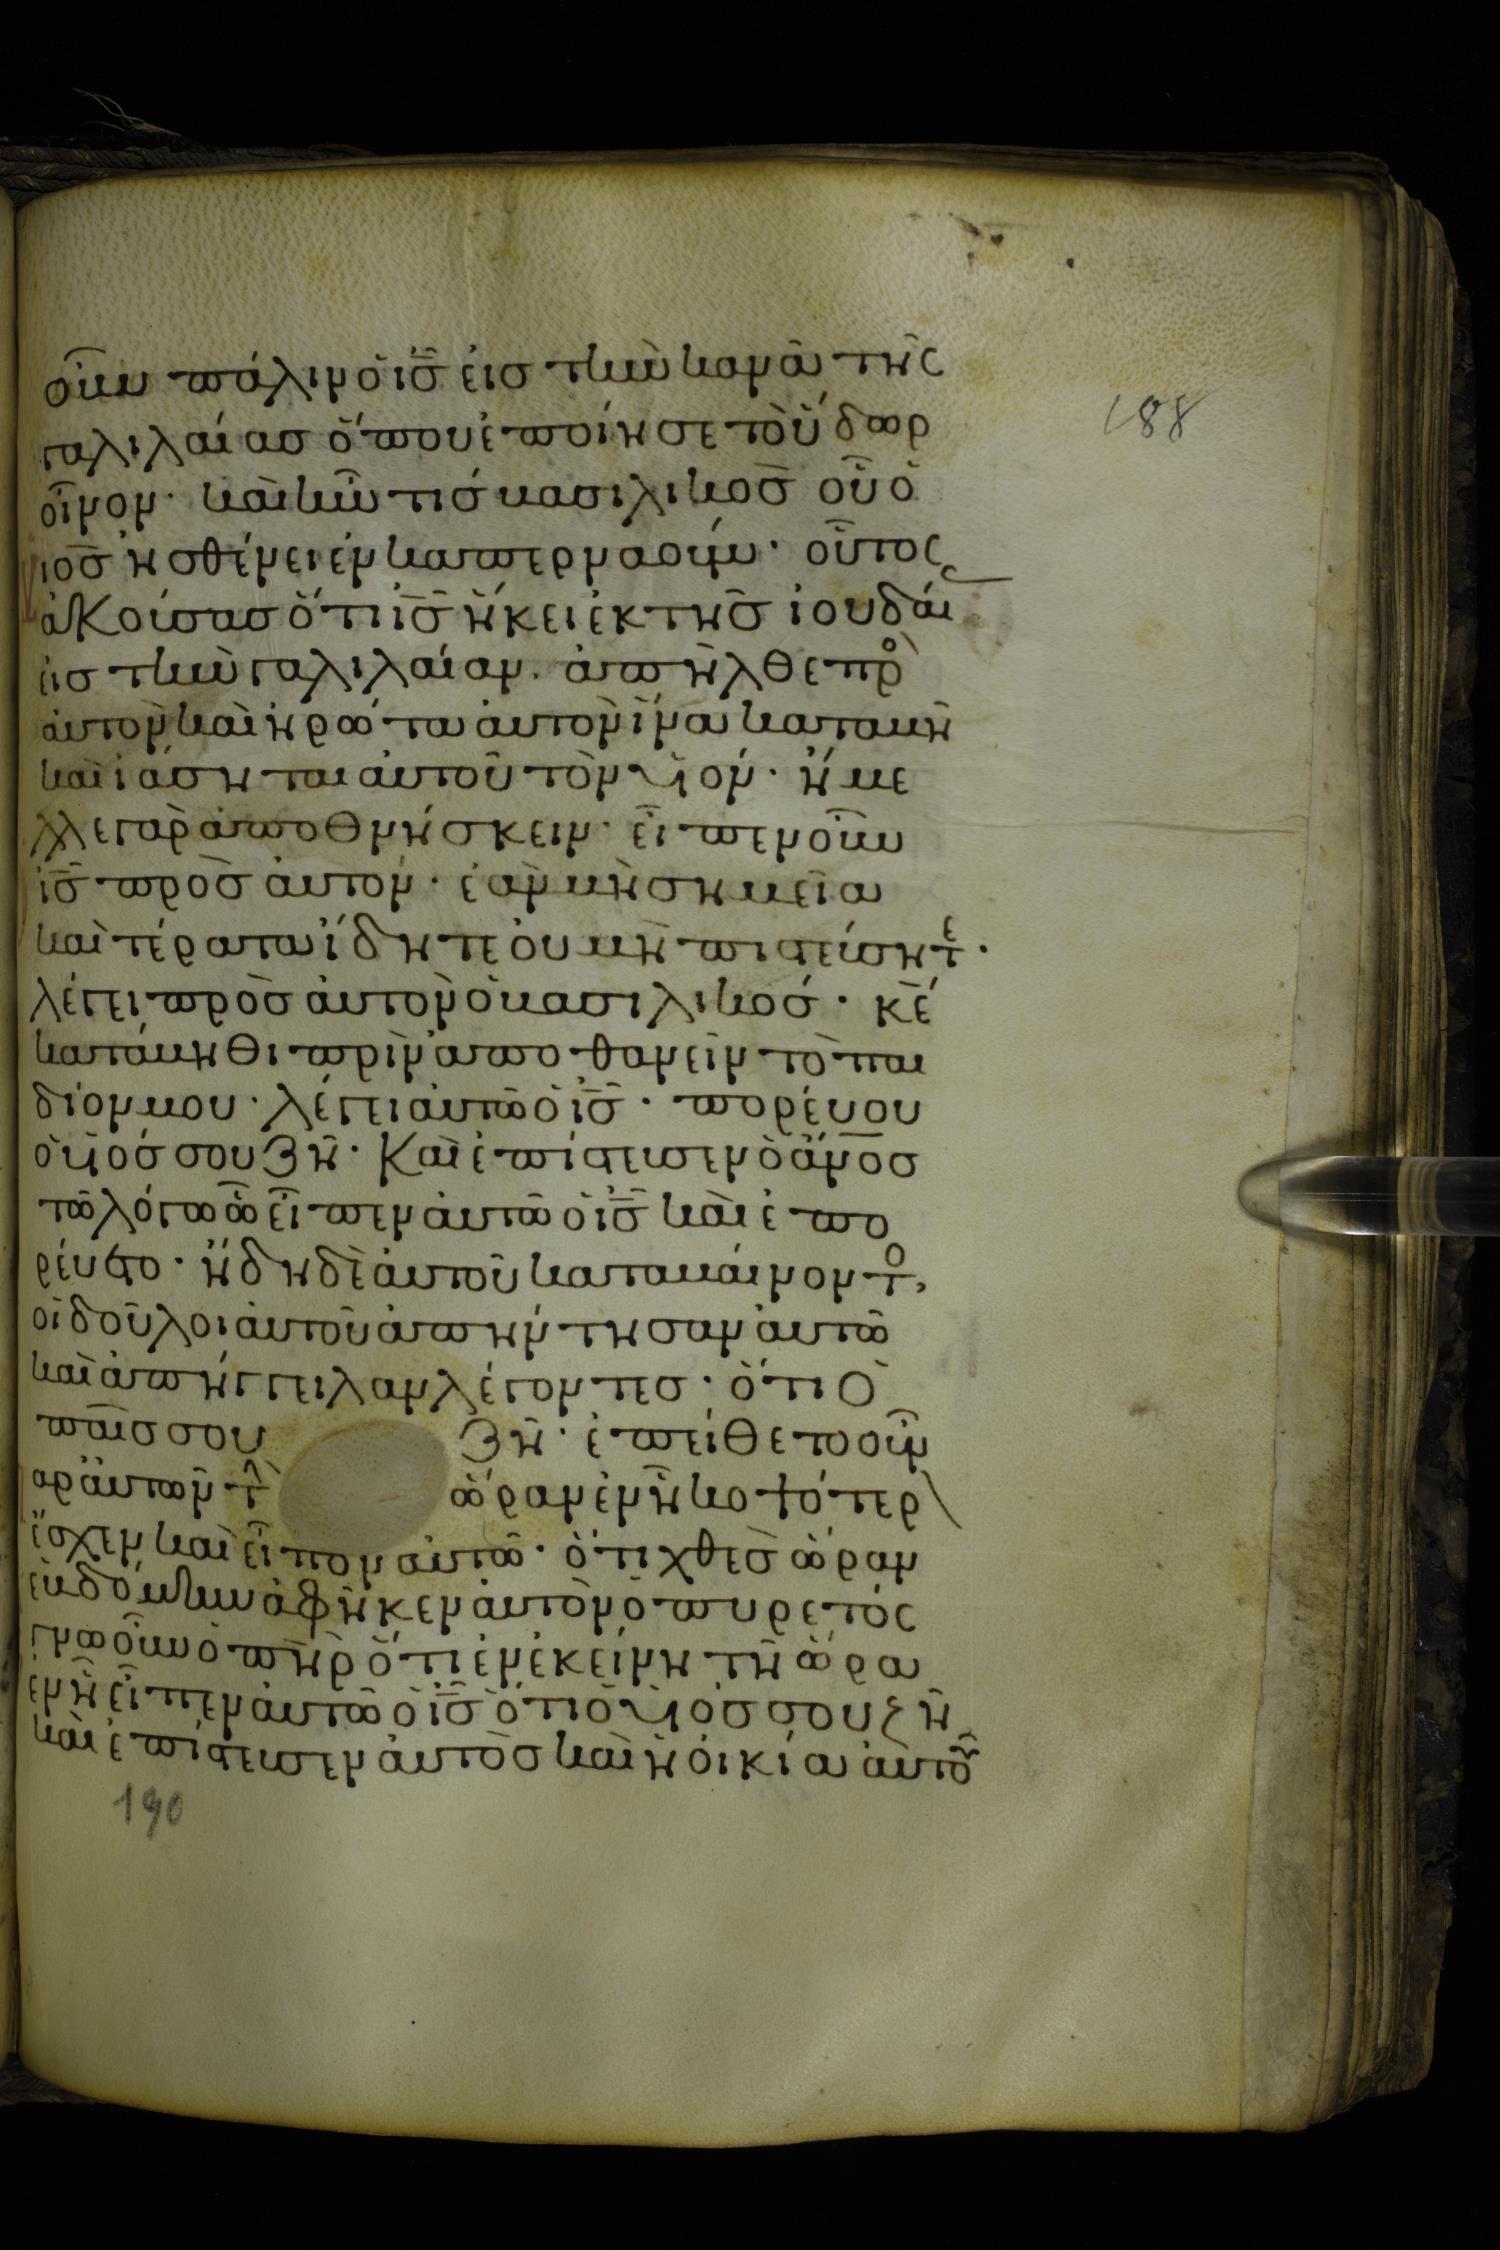 οὖν πάλιν ὁ ἰς̅ εἰσ τὴν κανᾶ τῆς
γαλιλαίασ ὅπου ἐποίησε τὸ ὕδωρ
οἶνον· καὶ ἦν τισ βασιλικοσ̀ οὗ ὁ
ιοσ̀ ἠσθένει ἐν καπερναούμ· οὗτος
ἀκούσασ ὅτι ἰς̅ ἥκει ἐκ τῆσ ἰουδαί
εἰσ τὴν γαλιλαίαν. ἀπῆλθε πρὸ
ἀυτον̀ καὶ ἠρώτα ἀυτον̀ ἵνα καταβῆ
καὶ ἰάσηται αὐτοῦ τὸν υἱόν· ἤμε
λλε γαρ̀ ἀποθνήσκειν· εἶπεν οὖν
ἰς̅ πρὸσ ἀυτον́· ἐὰν μὴ σημεῖα
καὶ τέρατα ἴδητε οὐ μὴ πιστεύσητε·
λέγει πρὸσ ἀυτον̀ ὁ βασιλικοσ́· κε̅
κατάβηθι πρὶν ἀποθανεῖν τὸ παι
δίον μου· λέγει ἀυτῶ ὁ ἰς̅· πορεύου
ὁ υἱόσ σου ζῆ· Καὶ ἐπίστευσεν ὁ ἄνο̅σ
τῶ λόγω ὧ εἶπεν ἀυτῶ ὁ ἰς̅ καὶ ἐπο
ρεύετο· ἤδη δὲ ἀυτοῦ καταβαίνοντο,
οἱ δοῦλοι ἀυτοῦ ἀπήντησαν ἀυτῶ
καὶ ἀπήγγειλαν λέγοντεσ· ὅτι Ὁ
παῖσ σου ζῆ· ἐπύθετο οὖν
παρ ἀυτῶν τὴ ὥραν ἐν ἧ κομψότερ
ἔσχεν καὶ εἶπον ἀυτῶ· ὅτι χθεσ̀ ὥραν
ἑβδόμην ἀφῆκεν ἀυτὸν ὁ πυρετός
γνω οὖν ὁ πη̅ρ ὅτι ἐν ἐκείνη τῆ ὥρα
εν ἧ εἶπεν ἀυτῶ ὁ ἰς̅ ὅτι ὁ υἱόσ σου ζῆ
καὶ ἐπίστευσεν ἀυτὸσ καὶ ἡ ὀικία ἀυτοῦ
190
188